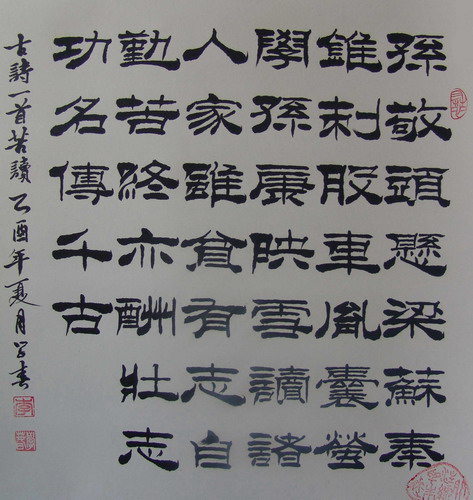 孫敬頭懸梁蘇秦
錐刺股車胤囊螢
學孫康映雪讀諸
人家雖貧有志自
勤苦終亦酬壯志
功名傳千古
古詩一首苦讀 乙酉年夏月書